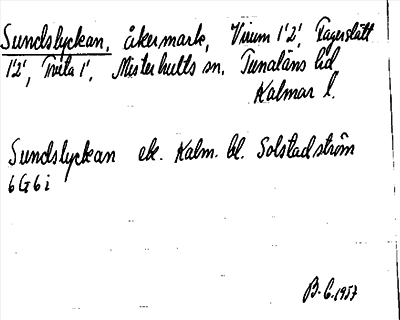 Sundslyckan, åkermark, Virum 1'2', Fagerslätt
1'2', Tveta 1', Misterhults sn. Tunaläns hd
Kalmar l.
Sundslyckan ek. Kalm. bl. Solstadström
6G6i
B.G. 1957